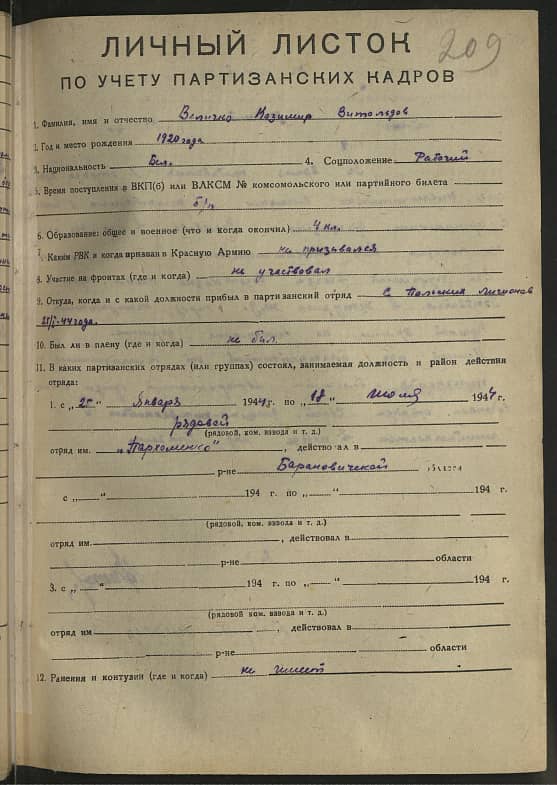 209
ЛИЧНЫЙ ЛИСТОК
ПО УЧЕТУ ПАРТИЗАНСКИХ КАДРОВ
1. Фамилия, имя и отчество Величко Казимир Витольдов
2. Год и место рождения 1920 года
3. Национальность Бел. 4. Соцположение Рабочий
5. Время поступления в ВКП(б) или ВЛКСМ № комсомольского или партийного билета
б/п
6. Образование: общее и военное (что и когда окончил) 4 кл.
7. Каким РВК и когда призван в Красную Армию не призывался
8. Участие на фронтах (где и когда) не участвовал
9. Откуда, когда и с какой должности прибыл в партизанский отряд С Польских легионов
25/I-44 года.
10. Был ли в плену (где и когда) не был.
11. В каких партизанских отрядах (или группах) состоял, занимаемая должность и район действия
отряда:
1. с „25" Января 1944 г. по „18" июля 1944 г.
рядовой
(рядовой, ком. взвода и т. д.)
отряд им. „Пархоменко", действовал в
р-не Барановичской области
с „ " 194 г. по „ " 194 г.
(рядовой, ком. взвода и т. д.)
отряд им. , действовал в
р-не области
3. с „ " 194 г. по „ " 194 г.
(рядовой, ком. взвода и т. д.)
отряд им , действовал в
р-не области
12. Ранения и контузии (где и когда) не имеет